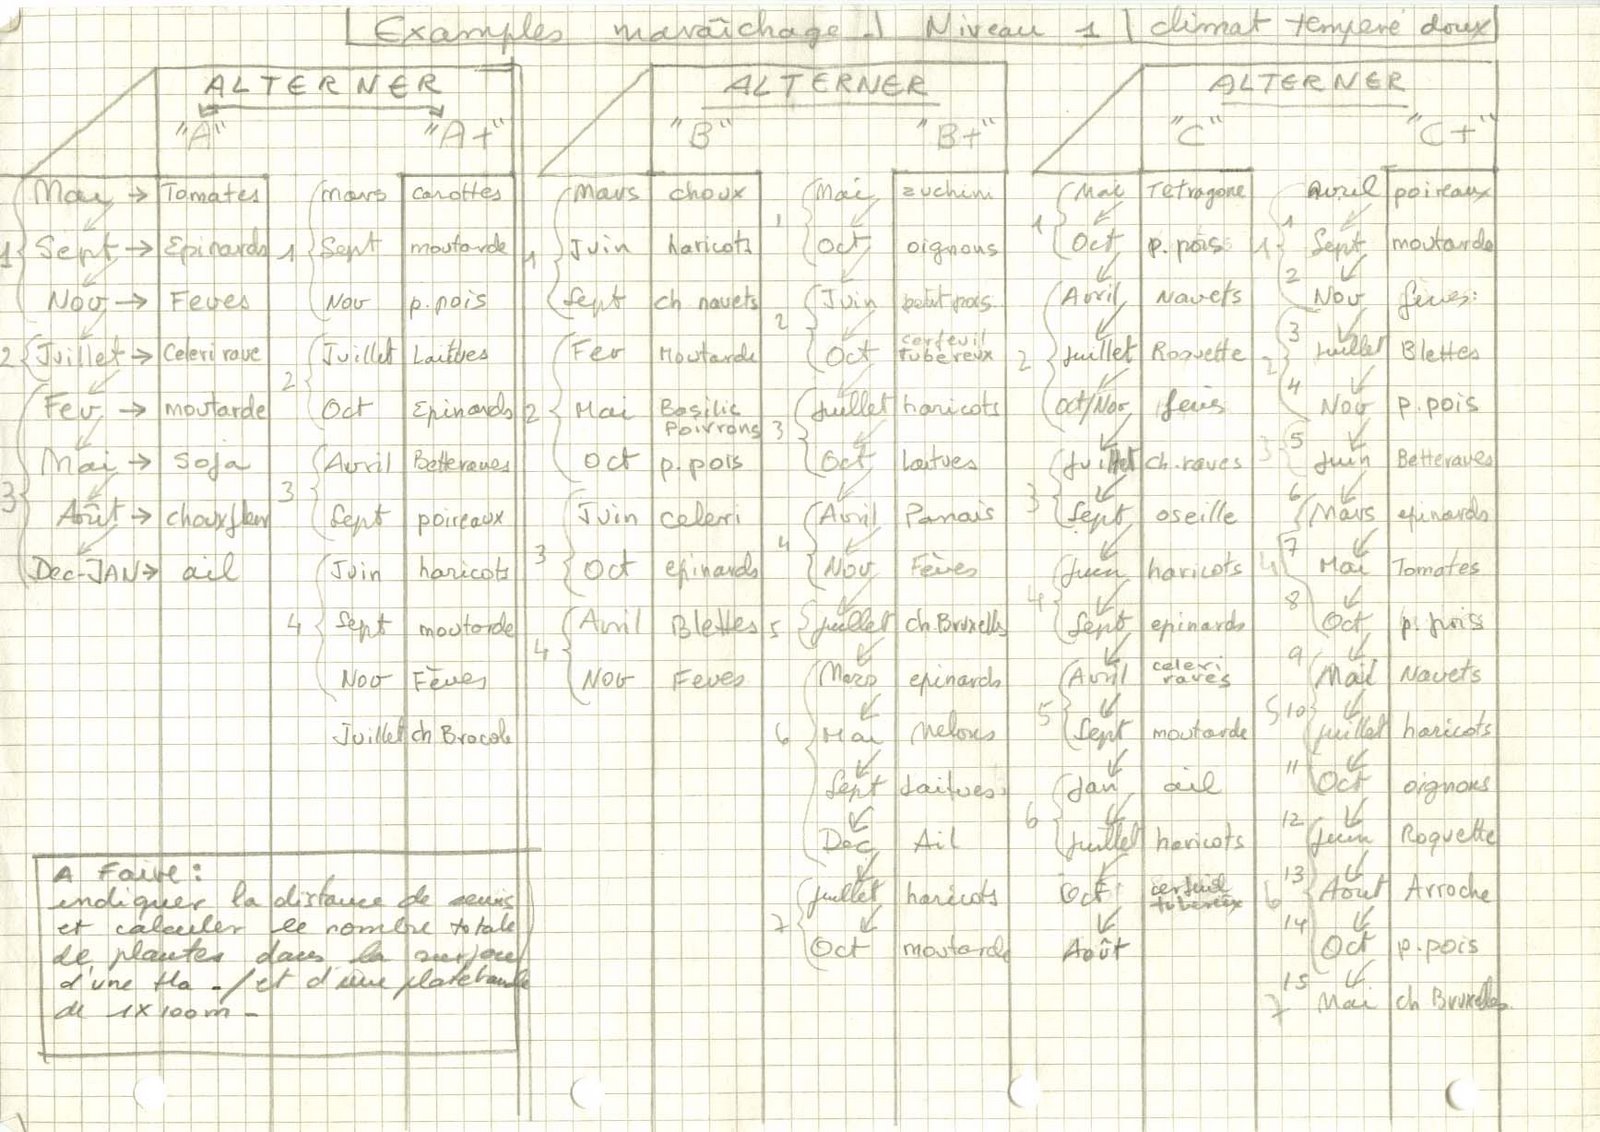 Examples maraîchage. Niveau 1 climat tempéré doux
ALTERNER
"A" "A+"
1 Mai → Tomates
Sept → Epinards
Nov → Feves
2 Juillet → Celeri rave
3 Fev → moutarde
Mai → Soja
Août → chouxfleur
Dec-JAN → ail
1 mars carottes
Sept moutarde
Nov p.pois
2 Juillet Laitues
Oct Epinards
3 Avril Betteraves
Sept poireaux
4 Juin haricots
Sept moutarde
Nov Fèves
Juillet ch Brocoli
ALTERNER
"B" "B+"
1 Mars choux
Juin haricots
Sept ch navets
2 Fev Moutarde
Mai Basilic
Poivrons
Oct p.pois
3 Juin celeri
Oct epinards
4 Avril Blettes
Nov Feves
1 Mai zuchini
Oct oignons
2 Juin petit pois
Oct cerfeuil
tubereux
3 Juillet haricots
Oct Laitues
4 Avril Panais
Nov Fèves
5 Juillet ch.Bruxelles
6 Mars epinards
Mai Melons
Sept Laitues
Dec Ail
7 Juillet haricots
Oct moutarde
ALTERNER
"C" "C+"
1 Mai Tetragone
Oct p.pois
2 Avril Navets
Juillet Roquette
Oct/Nov feves
3 Juillet ch.raves
Sept oseille
4 Juin haricots
Sept epinards
5 Avril celeri
raves
Sept moutarde
6 Jan ail
Juillet haricots
Oct cerfeuil
tubereux
Août
1 1 Avril poireaux
Sept moutarde
2 Nov feves:
2 3 Juillet Blettes
4 Nov p.pois
3 5 Juin Betteraves
6 Mars epinards
4 7 Mai Tomates
8 Oct p.pois
9 Mail Navets
5 10 Juillet haricots
11 Oct oignons
12 Juin Roquette
6 13 Août Arroche
14 Oct p.pois
7 15 Mai ch Bruxelles.
A Faire:
indiquer la distance de semis
et calculer le nombre totale
de plantes dans la surface
d'une Ha -/et d'une platebande
de 1X100m -